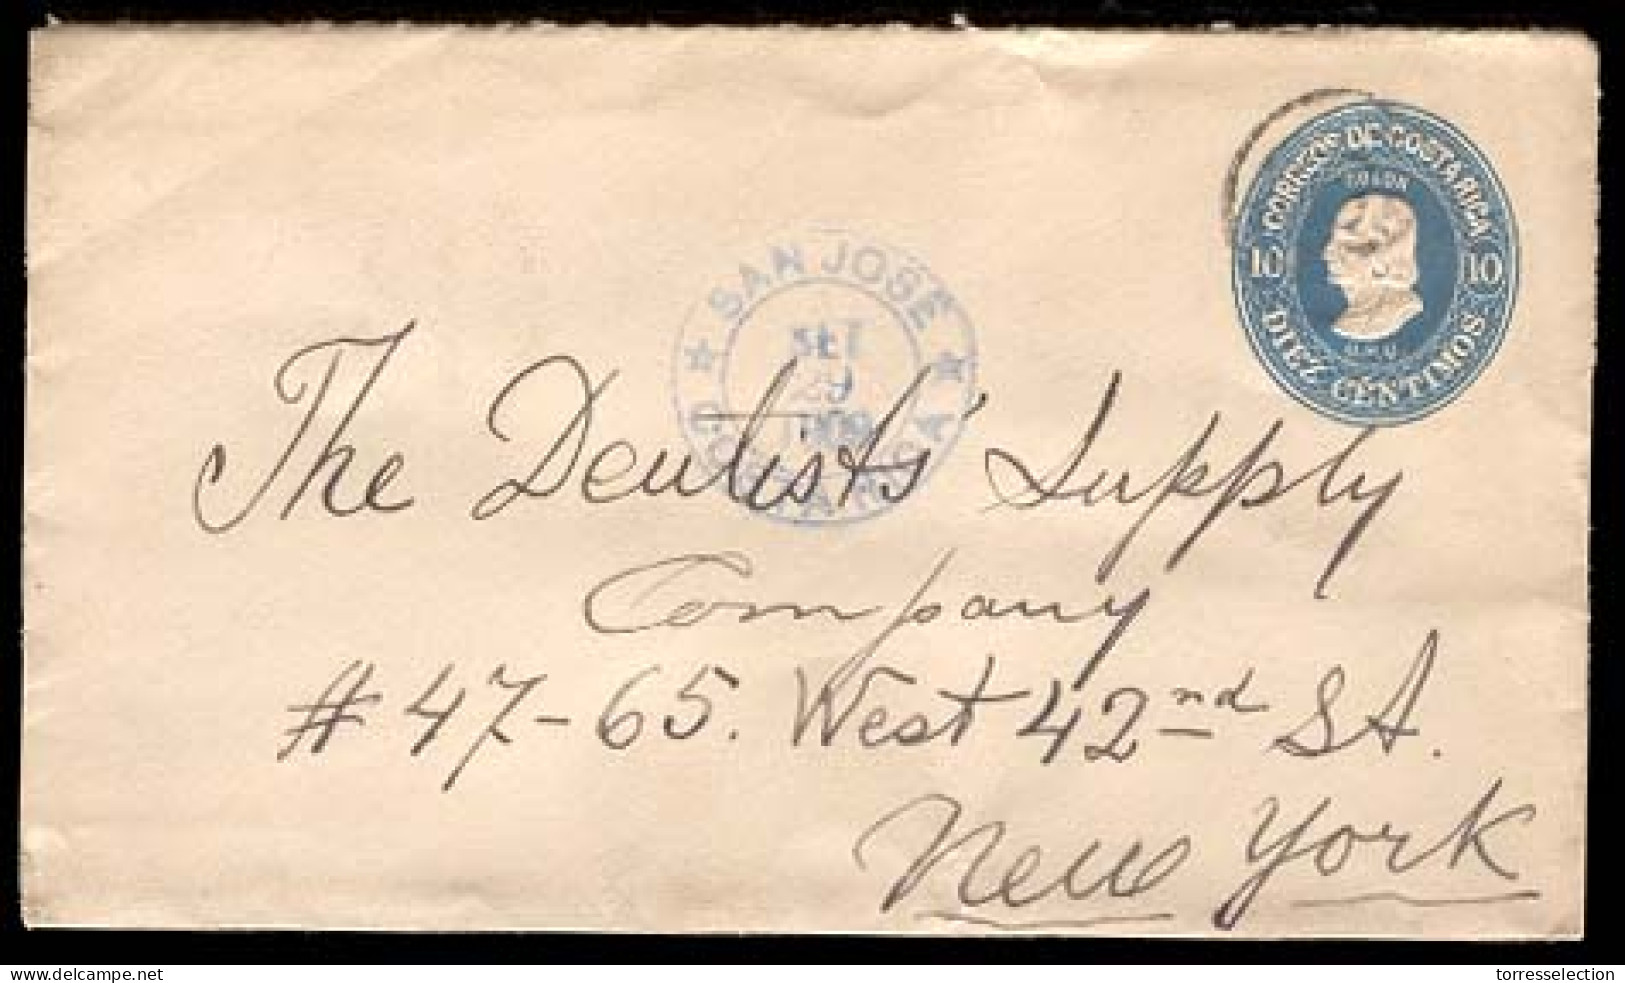 CORREOS DE COSTA RICA
COLON
10 10
U.P.U.
DIEZ CENTIMOS
SAN JOSÉ
SET
29
1909
COSTA RICA
The Dentists' Supply
Company
# 47-65. West 42nd St.
New York
delcampe.net
torresselection